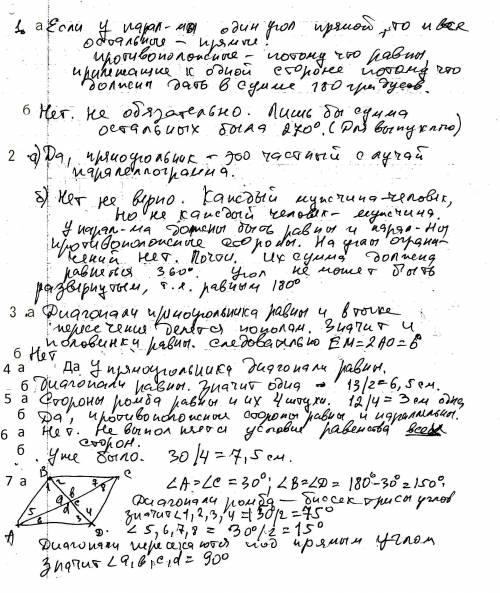 1. а Если у парал-ма один угол прямой, то и все
остальные - прямые.
противоположные - потому что равны
прилежащие к одной стороне потому что
должны дать в сумме 180 градусов.
б Нет. не обязательно. Лишь бы сумма
остальных была 270°. (Для выпуклого)
2 а) Да, прямоугольник - это частный случай
параллелограмма.
б) Нет не верно. Каждый мужчина-человек,
но не каждый человек - мужчина.
У парал-ма должны быть равны и парал-ны
противоположные стороны. На углы ограни-
чений нет. Почти. Их сумма должна
равняться 360°. Угол не может быть
развернутым, т.е. равным 180°
3 а Диагонали прямоугольника равны и в точке
пересечения делятся пополам. Значит и
половинки равны. следовательно
б Нет
4 а Да у прямоугольника диагонали равны.
б Диагонали равны. Значит одна - 13/2=6,5см.
5 а Стороны ромба равны и их 4 штуки. 12/4=3см одна
б Да, противоположные стороны равны и параллельны.
6 а Нет. Не выполняется условие равенства всех
сторон.
б Уже было. 30/4=7,5см.
7 а ∠A=∠C=30°; ∠B=∠D=180°-30°=150°.
Диагонали ромба - биссектрисы углов
значит ∠1,2,3,4=150/2=75°
∠5,6,7,8=30°/2=15°
Диагонали пересекаются под прямым углом
Значит ∠a,b,c,d=90°
B C
1 2 7 8
a b d c
5 6 3 4
A D